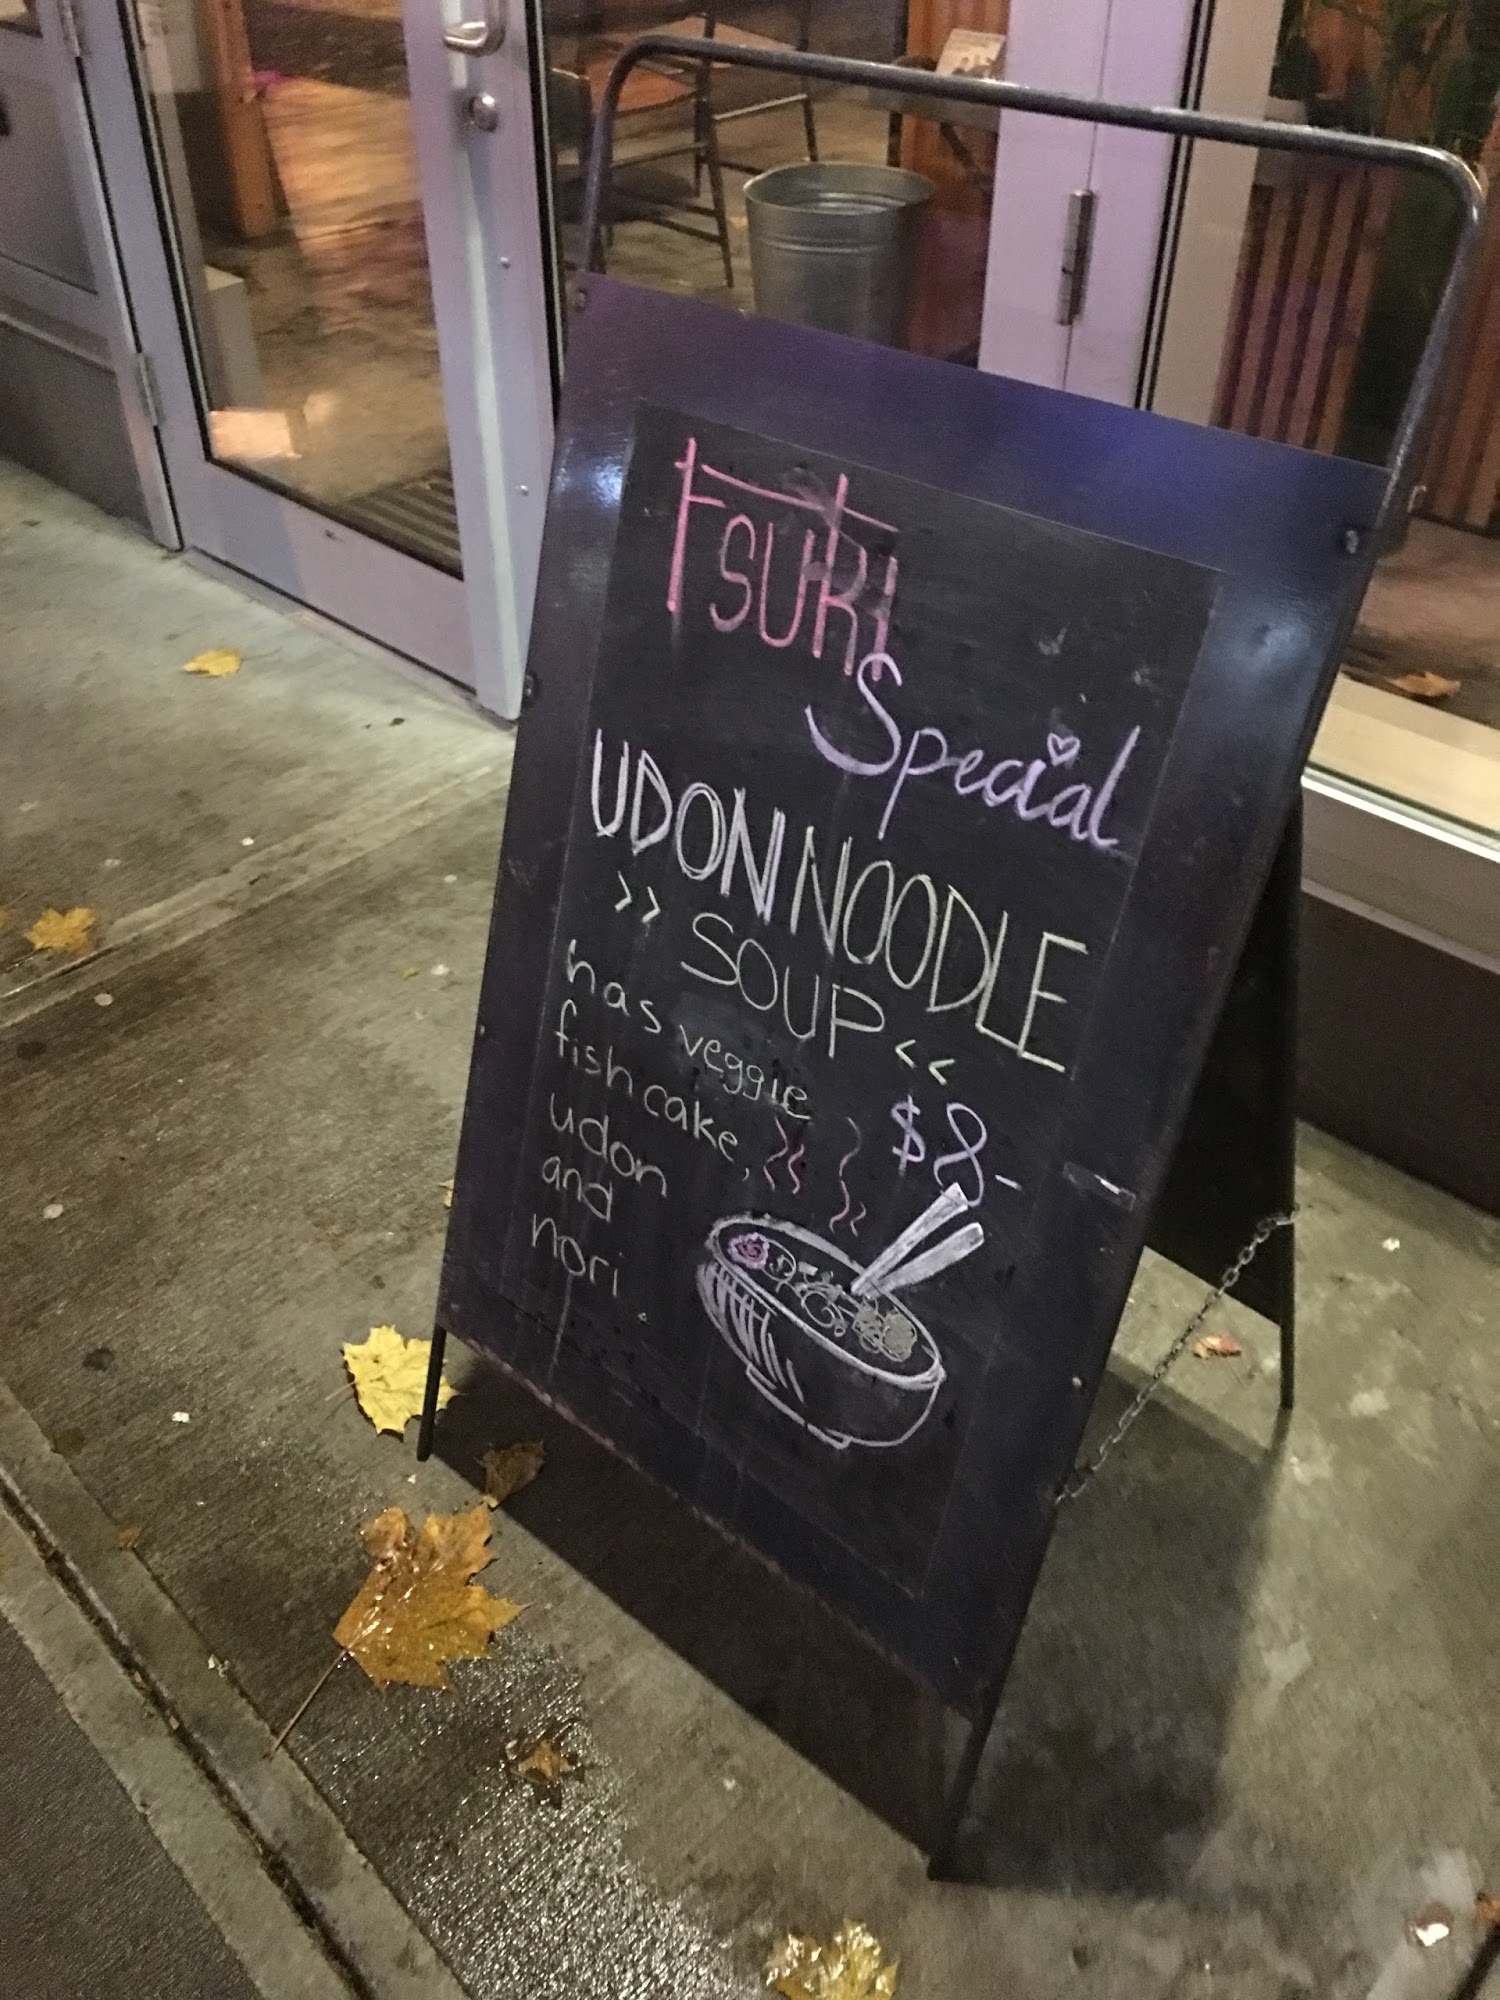 TSUKI
Special
UDON NOODLE
>> SOUP <<
has veggie
fish cake,
udon
and
nori.
$8-